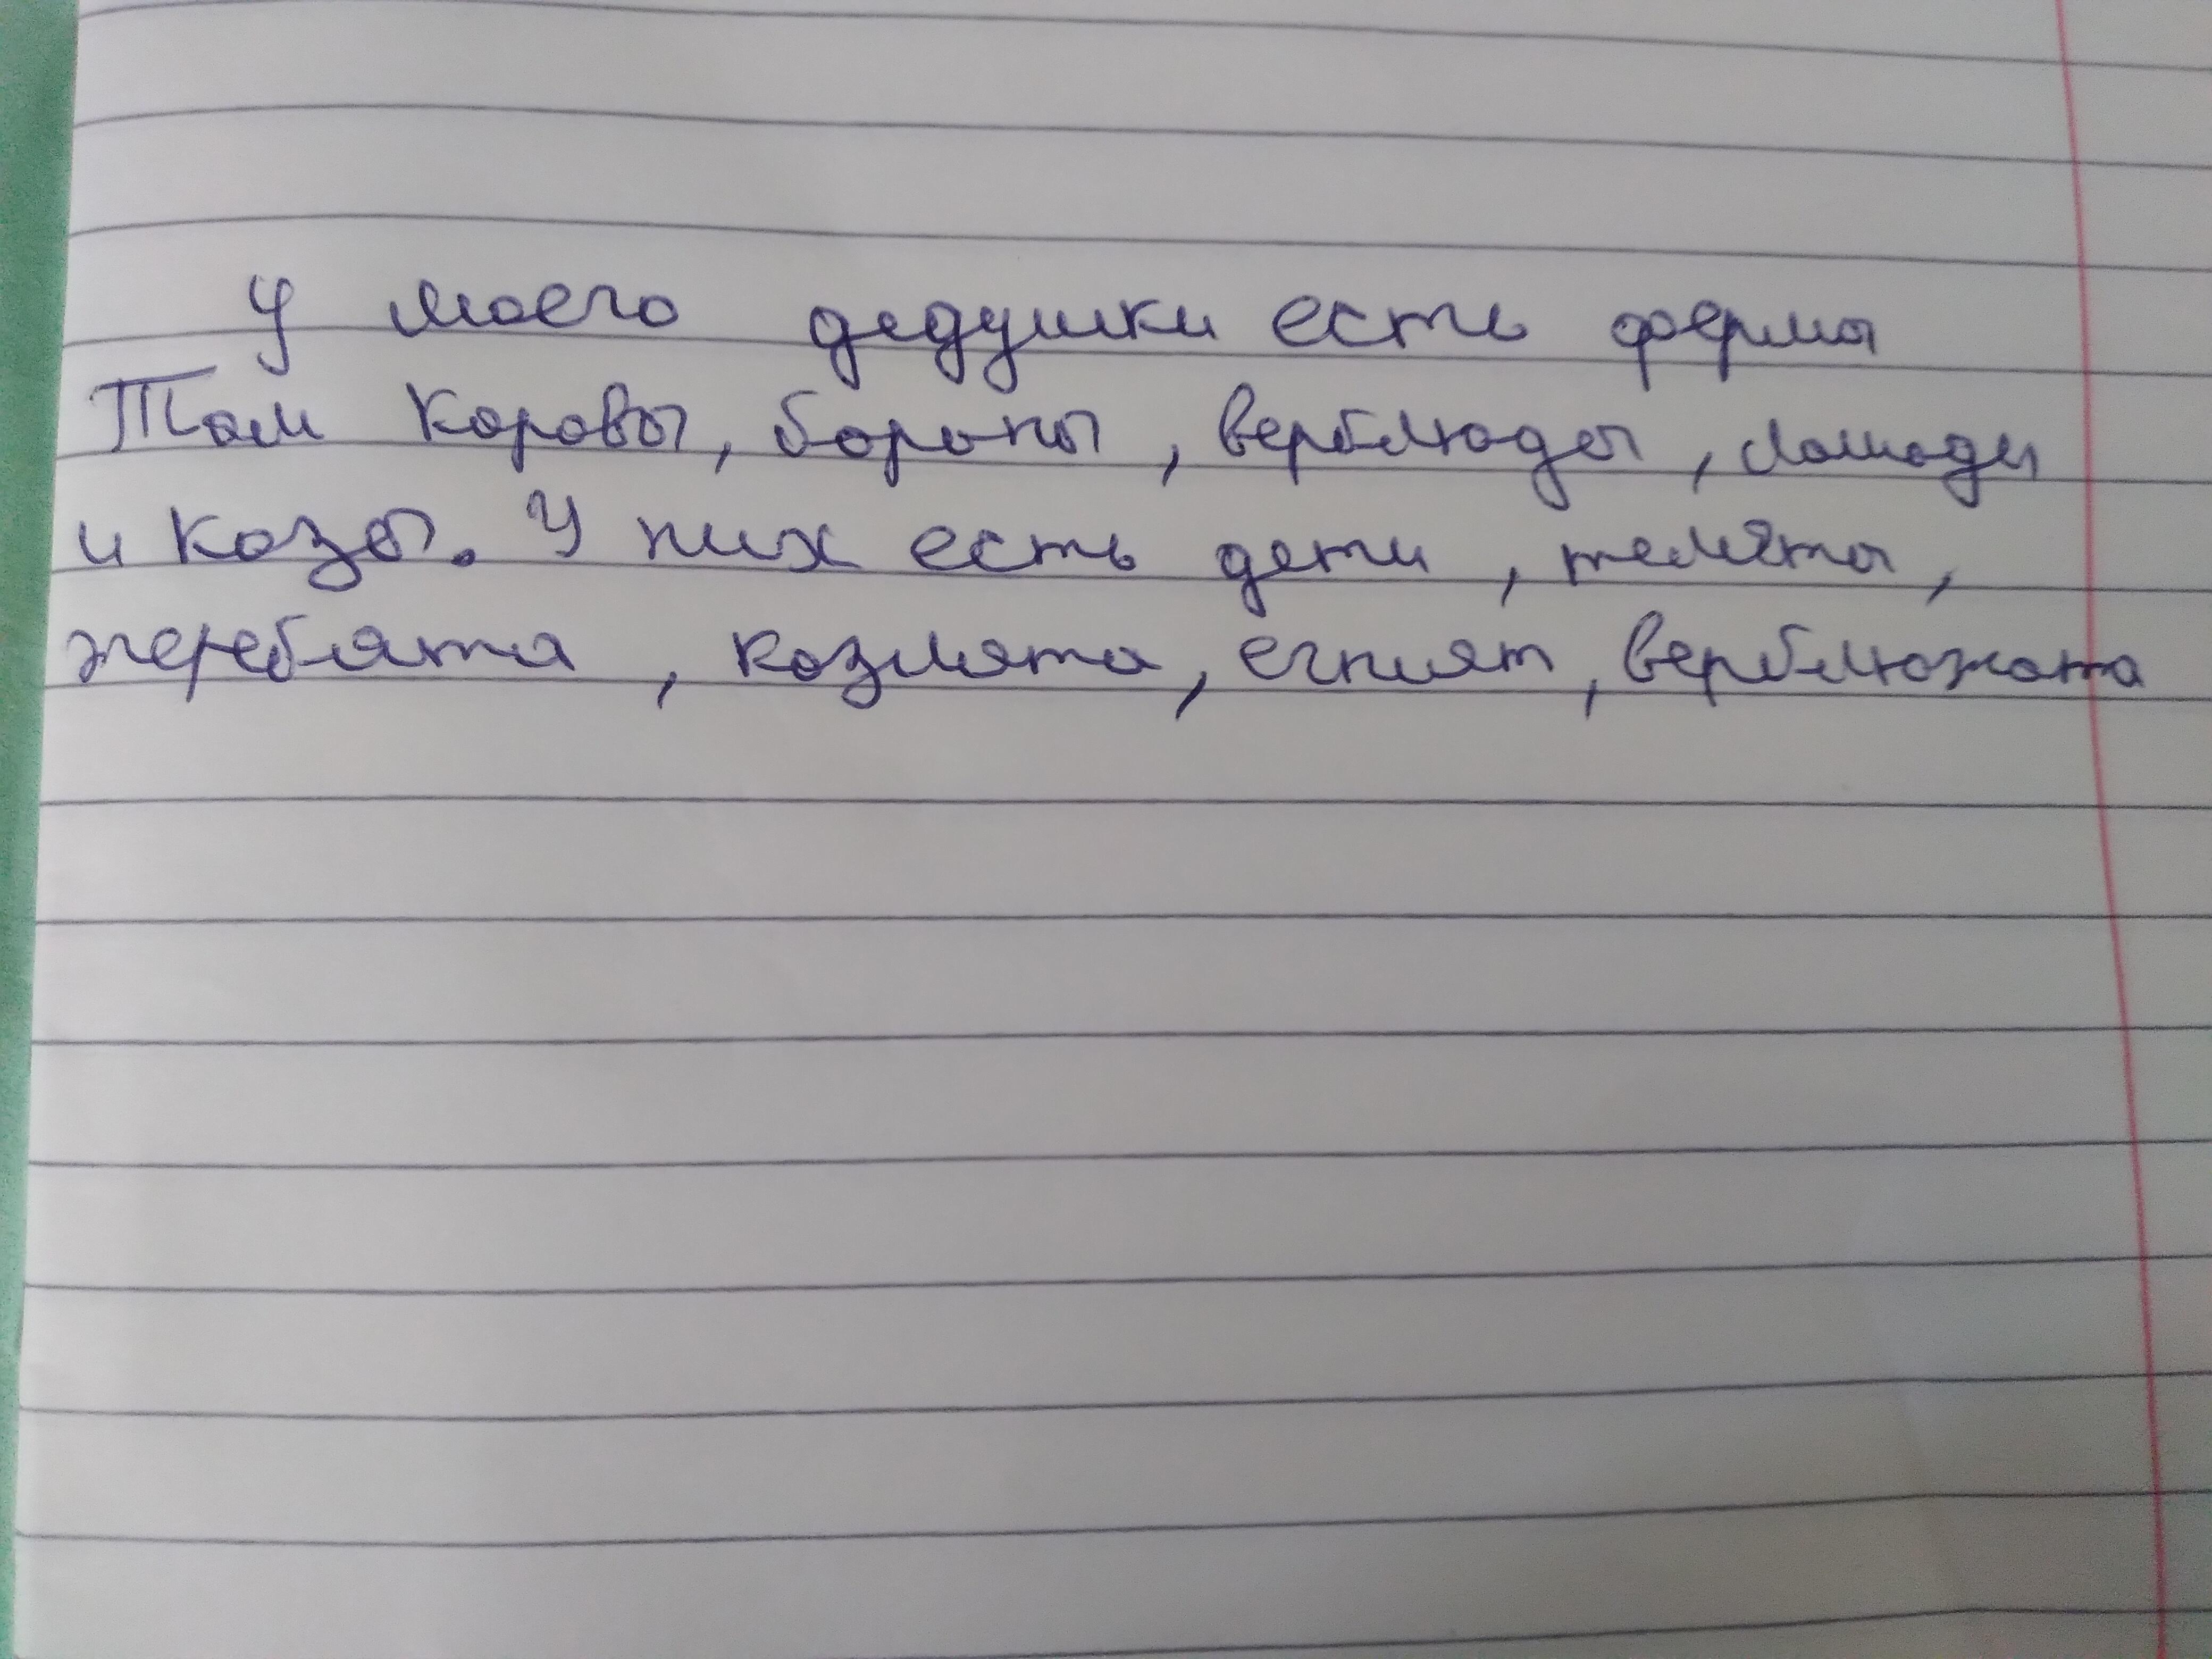 У моего дедушки есть ферма
Там коровы, бораны, верблюды, лошады
и козы. У них есть дети, теляты,
жеребята, козлята, егнят, верблюжата